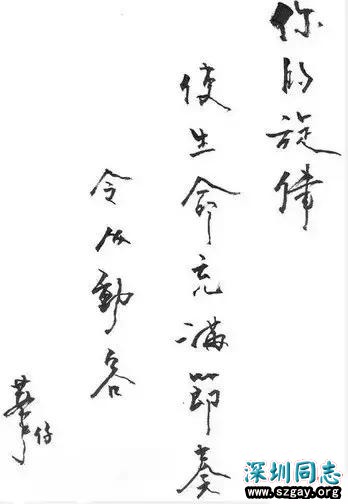 你的旋律
使生命充滿節奏
令動容
華仔
深圳同志
www.szgay.org